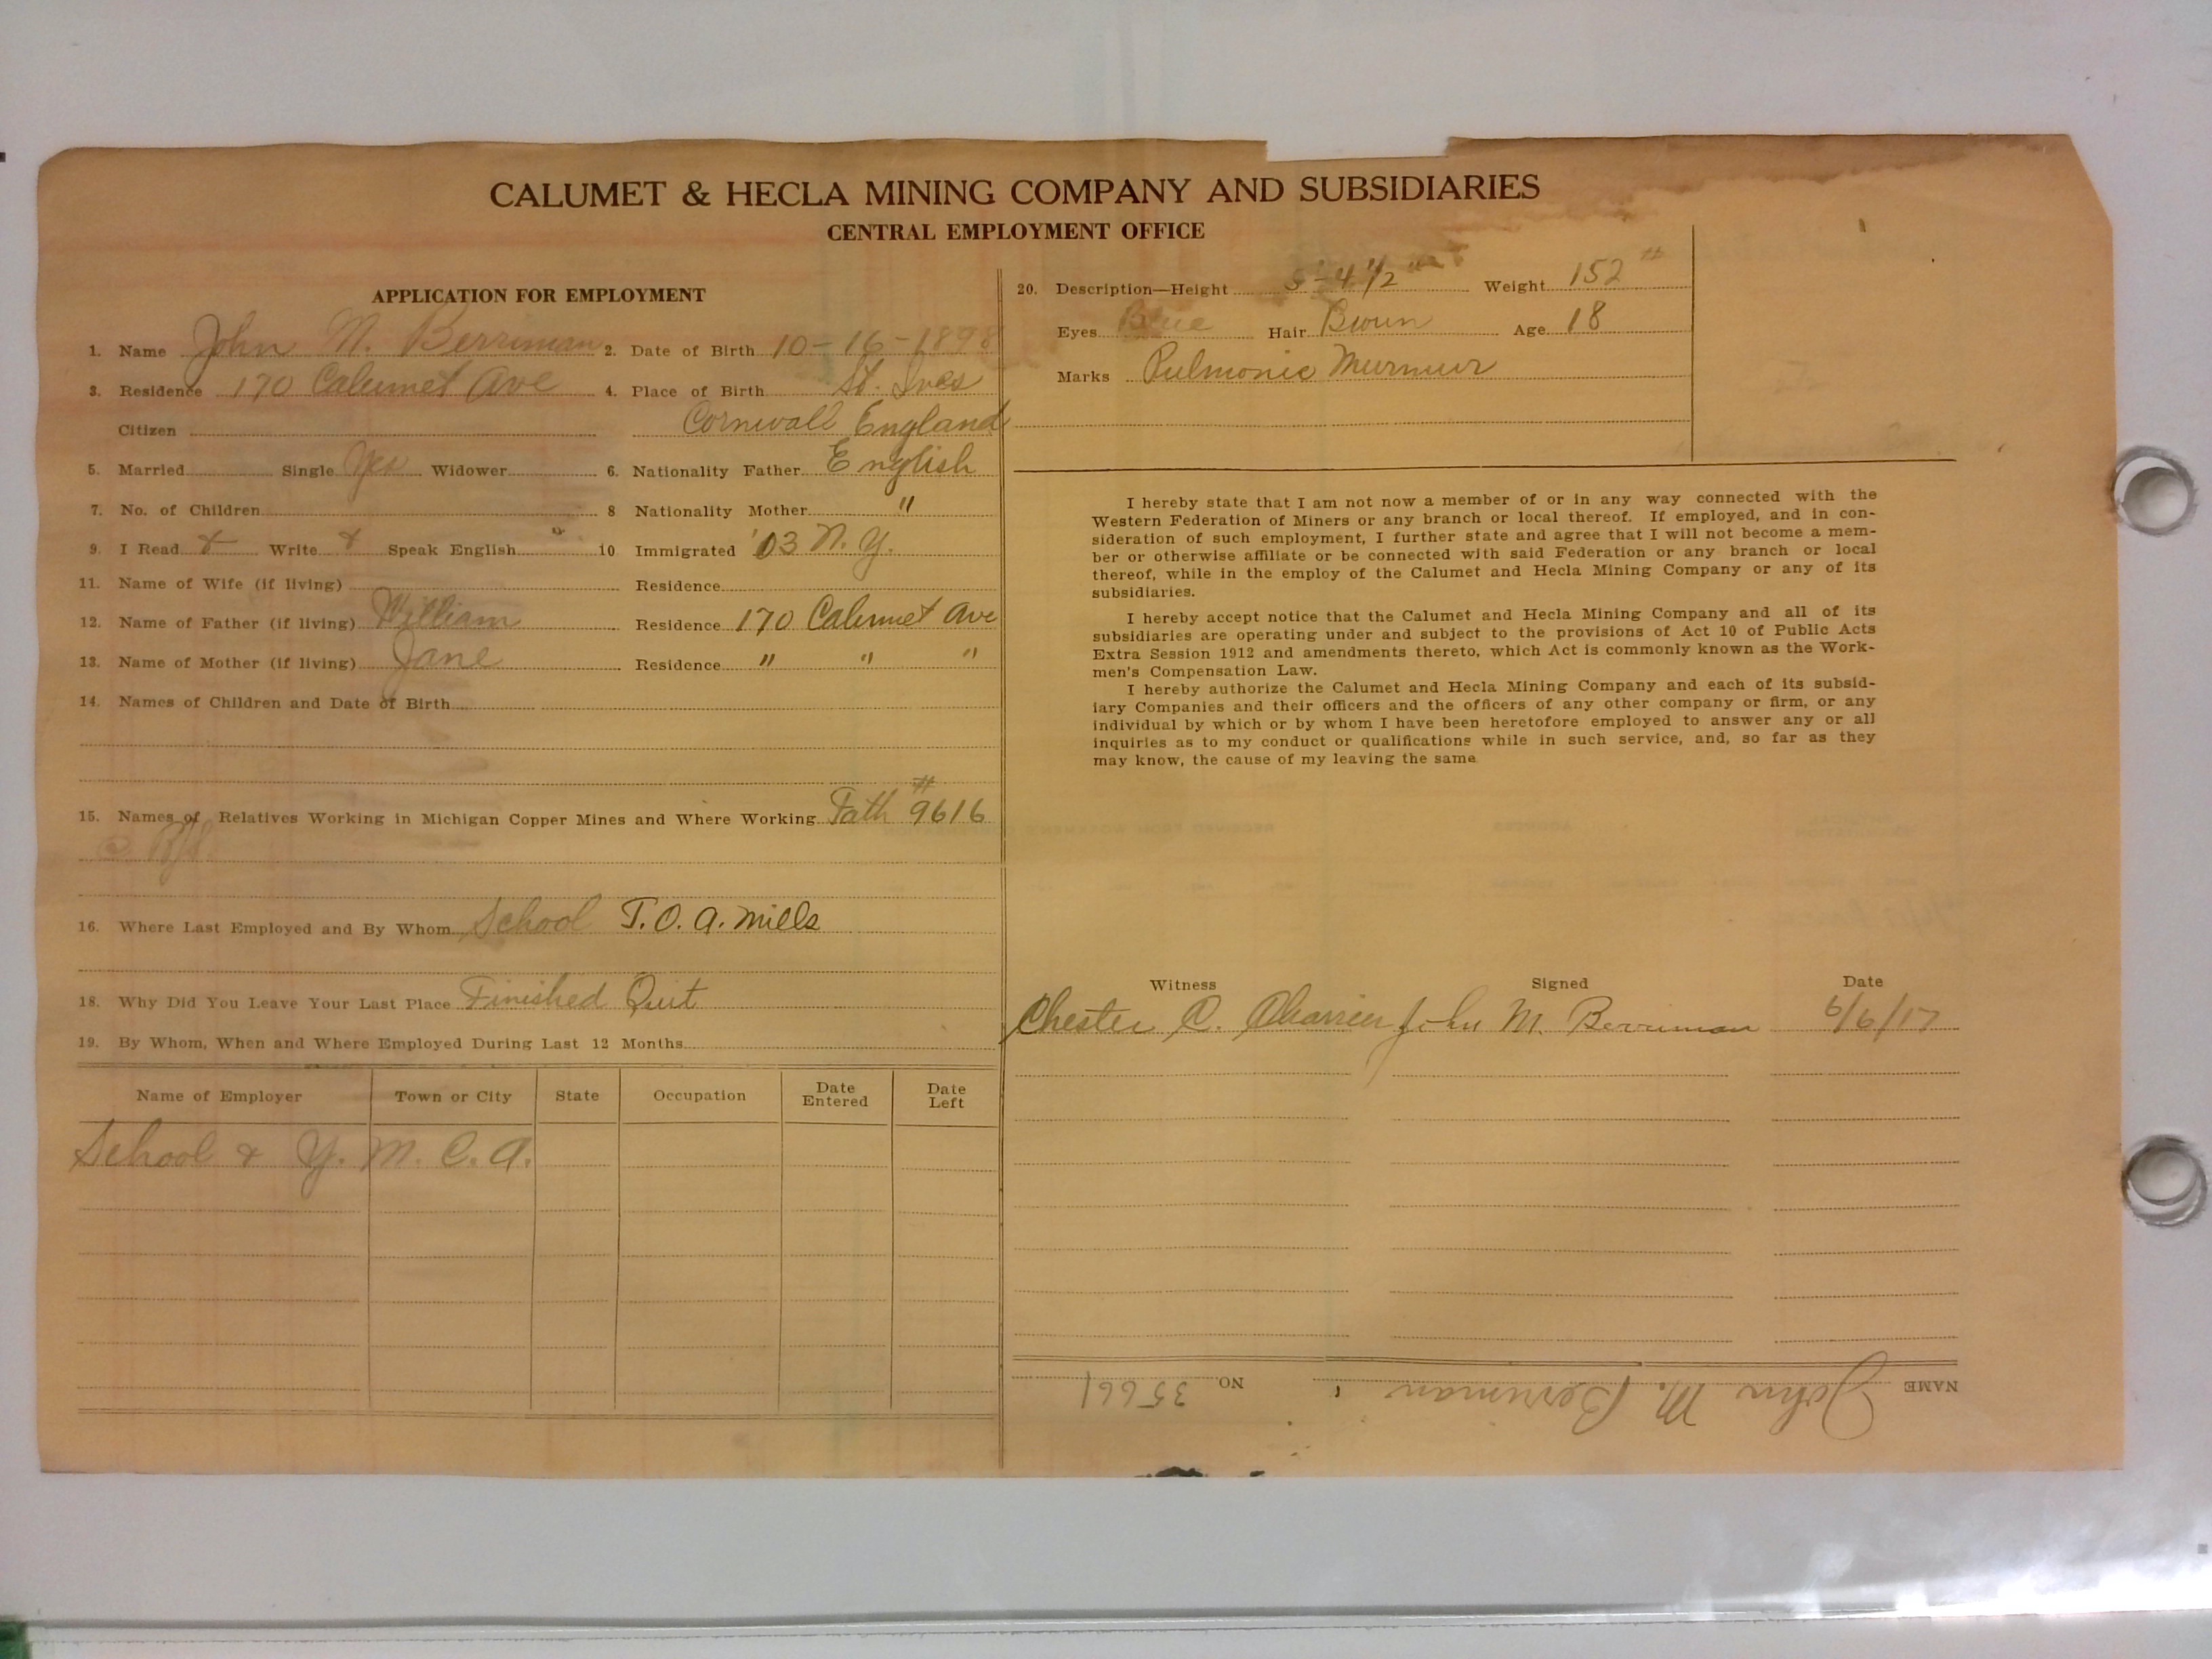 CALUMET & HECLA MINING COMPANY AND SUBSIDIARIES
CENTRAL EMPLOYMENT OFFICE
APPLICATION FOR EMPLOYMENT
1. Name John M. Berriman 2. Date of Birth 10-16-1898
3. Residence 170 Calumet Ave 4. Place of Birth St. Ives
Citizen Cornwall England
5. Married Single Yes Widower 6. Nationality Father English
7. No. of Children 8 Nationality Mother "
9. I Read Write Speak English 10 Immigrated '03 N.Y.
11. Name of Wife (if living) Residence
12. Name of Father (if living) William Residence 170 Calumet Ave
13. Name of Mother (if living) Jane Residence " " "
14. Names of Children and Date of Birth
15. Names of Relatives Working in Michigan Copper Mines and Where Working Fath #9616
16. Where Last Employed and By Whom School T.O.A. Mills
18. Why Did You Leave Your Last Place Finished Quit
19. By Whom, When and Where Employed During Last 12 Months
Name of Employer Town or City State Occupation Date Entered Date Left
School & Y.M.C.A.
20. Description—Height 5'-4 1/2" Weight 152 #
Eyes Blue Hair Brown Age 18
Marks Pulmonic Murmur
I hereby state that I am not now a member of or in any way connected with the
Western Federation of Miners or any branch or local thereof. If employed, and in con-
sideration of such employment, I further state and agree that I will not become a mem-
ber or otherwise affiliate or be connected with said Federation or any branch or local
thereof, while in the employ of the Calumet and Hecla Mining Company or any of its
subsidiaries.
I hereby accept notice that the Calumet and Hecla Mining Company and all of its
subsidiaries are operating under and subject to the provisions of Act 10 of Public Acts
Extra Session 1912 and amendments thereto, which Act is commonly known as the Work-
men's Compensation Law.
I hereby authorize the Calumet and Hecla Mining Company and each of its subsid-
iary Companies and their officers and the officers of any other company or firm, or any
individual by which or by whom I have been heretofore employed to answer any or all
inquiries as to my conduct or qualifications while in such service, and, so far as they
may know, the cause of my leaving the same
Witness Signed Date
Chester C. John M. Berriman 6/6/17
NAME John M. Berriman NO 35661